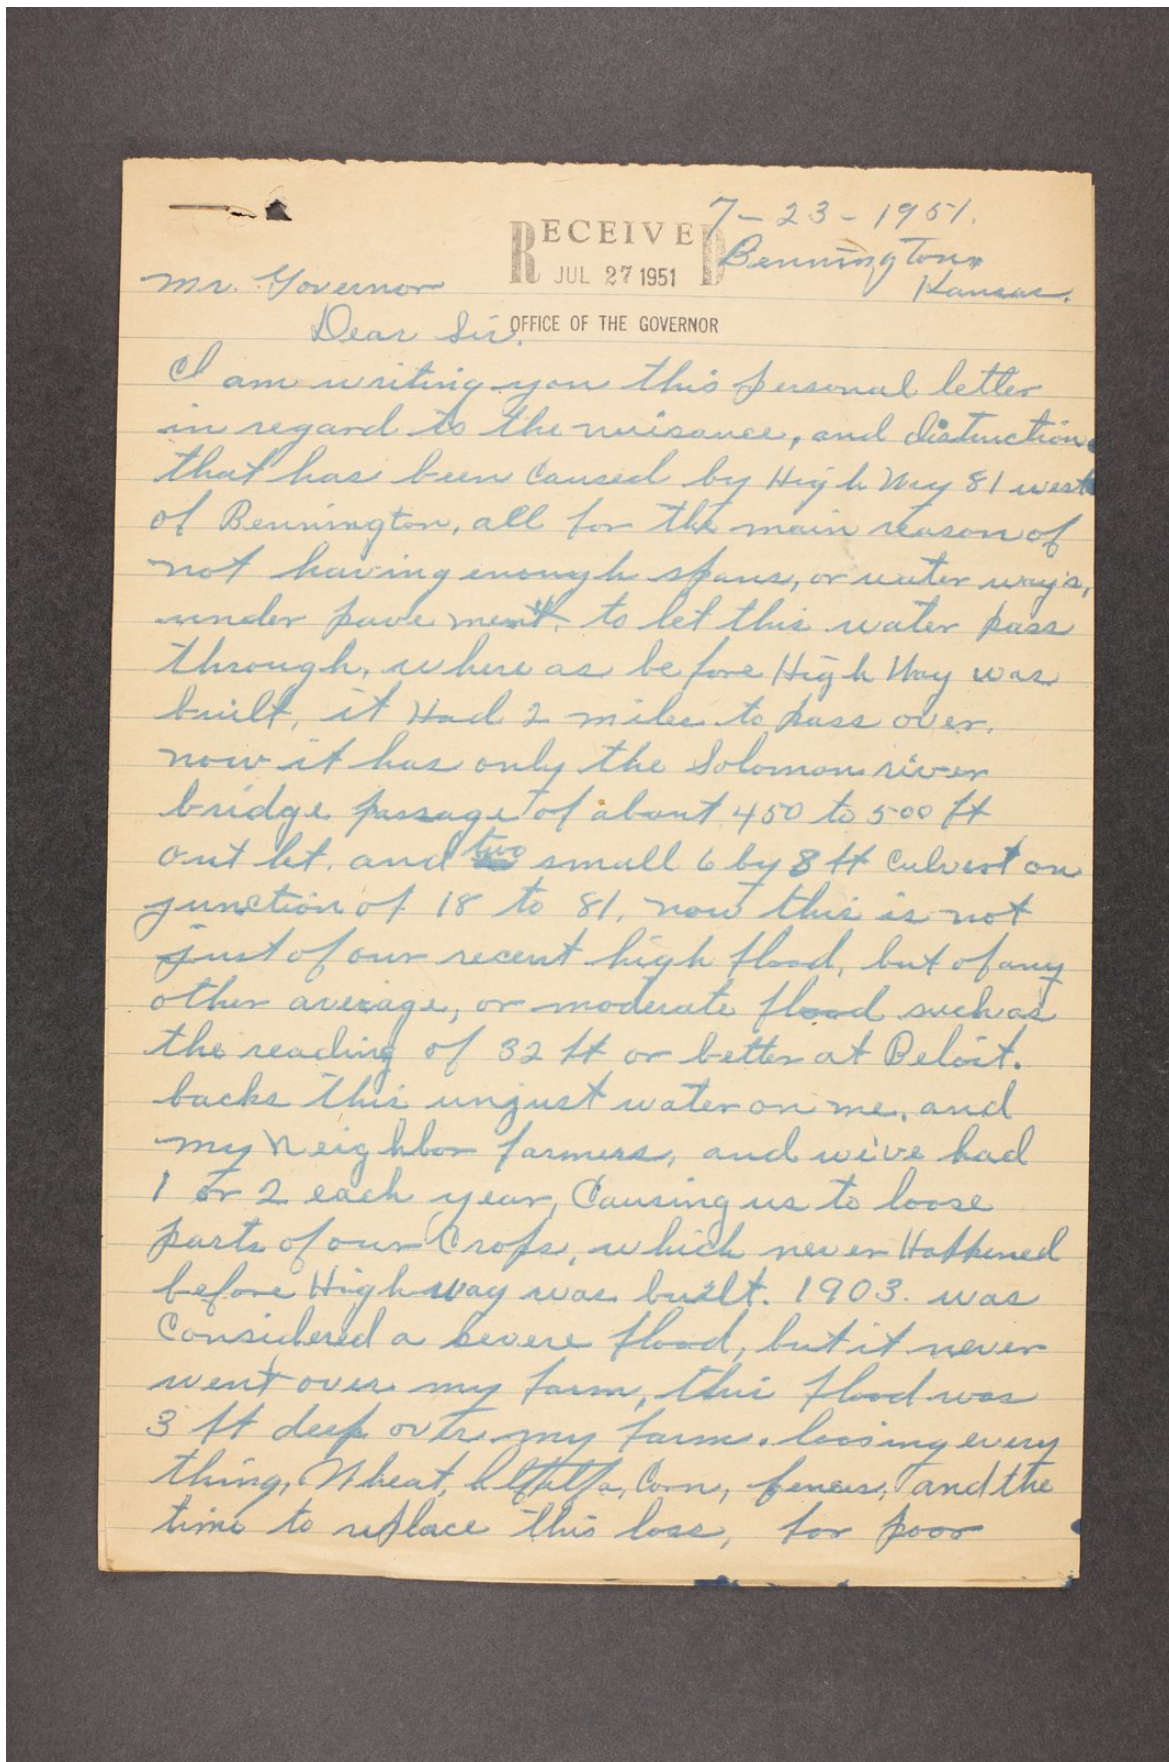 7-23-1951.
RECEIVED
JUL 27 1951
Bennington
Kansas.
Mr. Governor
OFFICE OF THE GOVERNOR
Dear Sir.
I am writing you this personal letter
in regard to the nuisance, and distruction
that has been Caused by High Way 81 west
of Bennington, all for the main reason of
not having enough spans, or water way's,
under pave ment, to let this water pass
through, where as before High Way was
built, it Had 2 miles to pass over.
now it has only the Solomon river
bridge passage of about 450 to 500 ft
out let. and two small 6 by 8 ft Culvert on
junction of 18 to 81, now this is not
just of our recent high flood, but of any
other average, or moderate flood such as
the reading of 32 ft or better at Beloit.
backs this unjust water on me, and
my Neighbor farmers, and we've had
1 or 2 each year, Causing us to loose
parts of our Crops, which never Happened
before Highway was built. 1903. was
Considered a severe flood, but it never
went over my farm, this flood was
3 ft deep over my farm. loosing every
thing, Wheat, Alfalfa, Corn, fences, and the
time to replace this loss, for poor